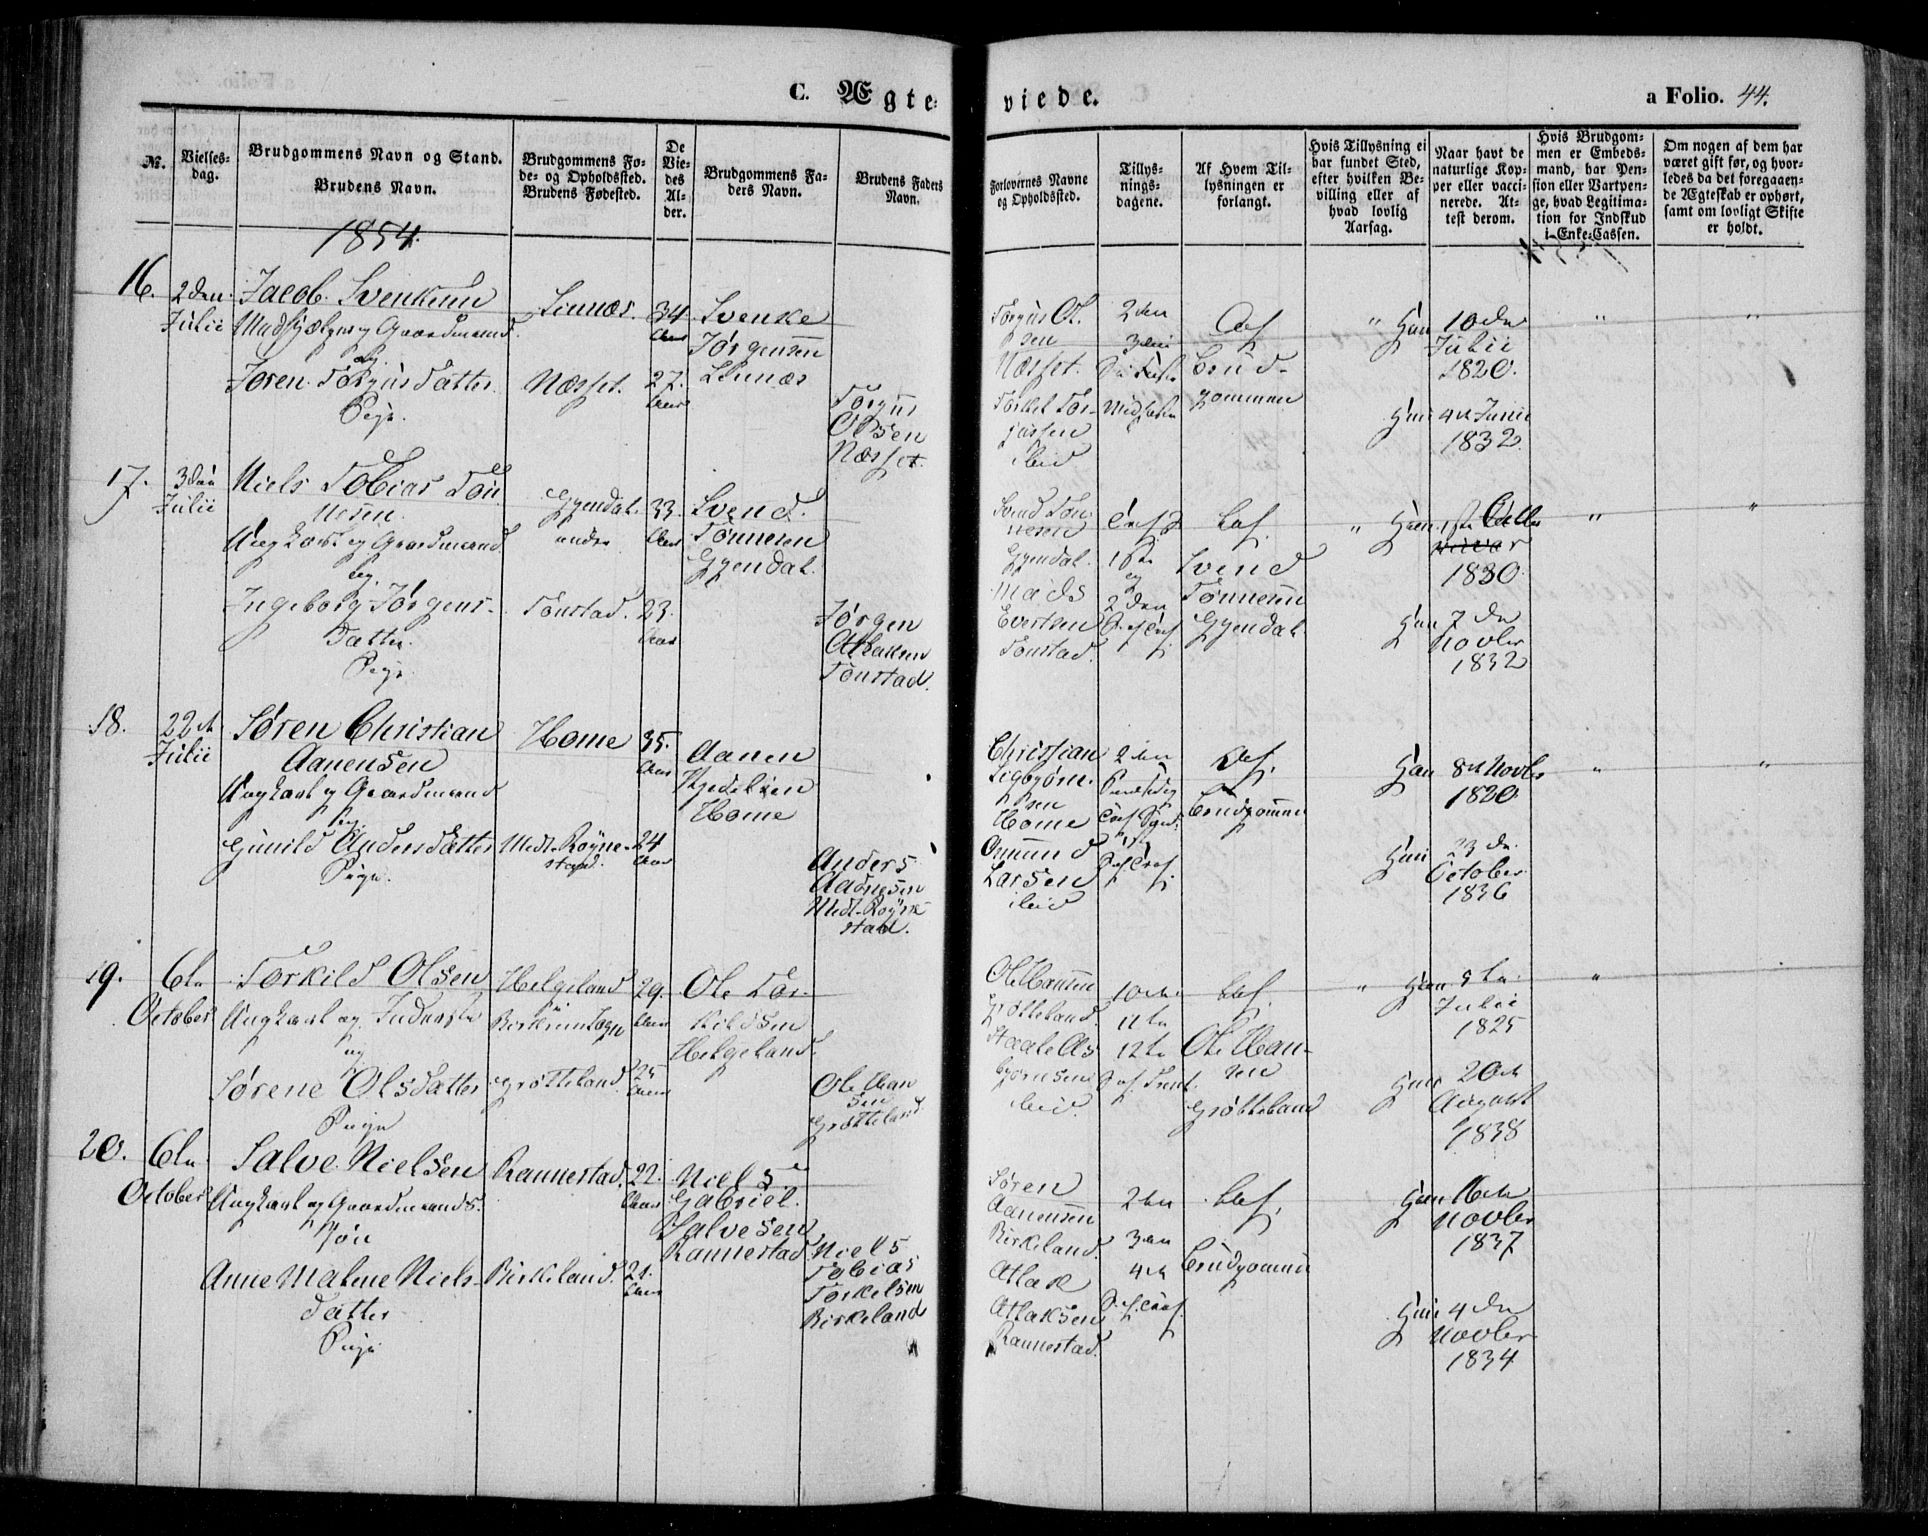 C. Ægte-
viede.
a Folio. 44.
№.
Vielses-
dag.
Brudgommens Navn og Stand.
Brudens Navn.
Brudgommens Fø-
de- og Opholdssted.
Brudens Fødested.
De
Vie-
des
Al-
der.
Brudgommens Fa-
ders Navn.
Brudens Faders
Navn.
Forlovernes Navne
og Opholdssted.
Tillys-
nings-
dagene.
Af Hvem Til-
lysningen er
forlangt.
Hvis Tillysning ei
har fundet Sted,
efter hvilken Be-
villing eller af
hvad lovlig
Aarsag.
Naar havt de
naturlige Kop-
per eller vacci-
nerede. At-
test derom.
Hvis Brudgom-
men er Embeds-
mand, har Pen-
sion eller Vartpen-
ge, hvad Legitima-
tion for Indskud
i Enke-Cassen.
Om nogen af dem har
været gift før, og hvor-
ledes da det foregaaen-
de Ægteskab er ophørt,
samt om lovligt Skifte
er holdt.
1854.
16.
2den
Julii
Jacob
og Gaardmand.
og
Tørgusdatter
Pige.
Næsset.
34
Aar
27.
Aar
Svenke
Jørgensen
Tørgus
Olsen
Næsset.
Tørgus Ol-
sen
Næsset.
ibid
2den
3die
Af
Brud-
gommen
"
Han 10de
Julii
1820.
Hun 4de Junii
1832.
"
"
17.
3die
Julii
Niels Tobias Tøn
nesen
Ungkarl og Gaardmand
og
Ingeborg Jørgens-
datter
Pige
Gyendal
Tonstad.
33.
Aar
23.
Aar
Svend
Tønnesen
Gyendal.
Jørgen
Atlaksen
Tonstad.
Svend Tøn
nesen
Gyendal
Mads
Evertsen
Tonstad.
1ste
og
2den
Af
Svend
Tønnesen
Gyendal.
"
Han 1ste
1830
Hun 7de
Novbr
1832
"
"
18.
22de
Julii
Søren Christian
Aanensen
Ungkarl og Gaardmand
og
Gunild Andersdatter
Pige.
Home
Medl. Røyne-
stad.
35.
Aar
24
Aar
Aanen
Home
Anders
Aadnesen
Medl. Røyne
stad.
Christian
Sigbjørn-
sen
Home
Omund
Larsen
ibid
2den
Af
Brudgommen
Han 8de Novbr
1820
Hun 23de
October
1836
"
"
19.
6te
October
Torkild Olsen
Ungkarl og Inderste
og
Sørene Olsdatter
Pige
Helgeland
i
Birkrim Sogn
Grøtteland
29.
Aar
25
Aar
Ole Tor-
kildsen
Helgeland.
Ole Han
sen
Grøtteland
Ole Hansen
Grøtteland.
Staale As
bjørnsen
ibid.
10de
11te
12te
Af
Ole Han-
sen
Grøtteland
"
Han 9de
Julii
1825
Hun 20de
August
1838
"
20.
6te
October
Salve Nielsen
Ungkarl og Gaardmands
søn
Anne Malene Niels-
datter
Pige
Rannestad.
Birkeland.
22.
Aar
21.
Aar
Niels
Gabriel
Salvesen
Rannestad
Niels
Tobias
Torkelsen
Birkeland
Søren
Aanensen
Birkeland.
Atlak
Atlaksen
Rannestad.
2den
3die
4de
Af
Brudgommen
Han 16de
Novbr
1837
Hun 4de
Novbr
1834